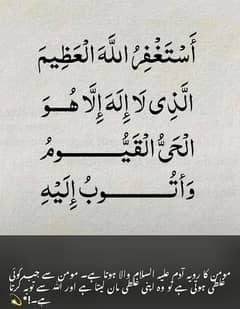 أَسْتَغْفِرُ اللَّهَ الْعَظِيمَ
الَّذِي لَا إِلَهَ إِلَّا هُوَ
الْحَيُّ الْقَيُّومُ
وَأَتُوبُ إِلَيْهِ
مومن کا رویہ آدم علیہ السلام والا ہوتا ہے۔ مومن سے جب کوئی
غلطی ہوتی ہے تو وہ اپنی غلطی مان لیتا ہے اور اللہ سے توبہ کرتا
ہے۔!*💫